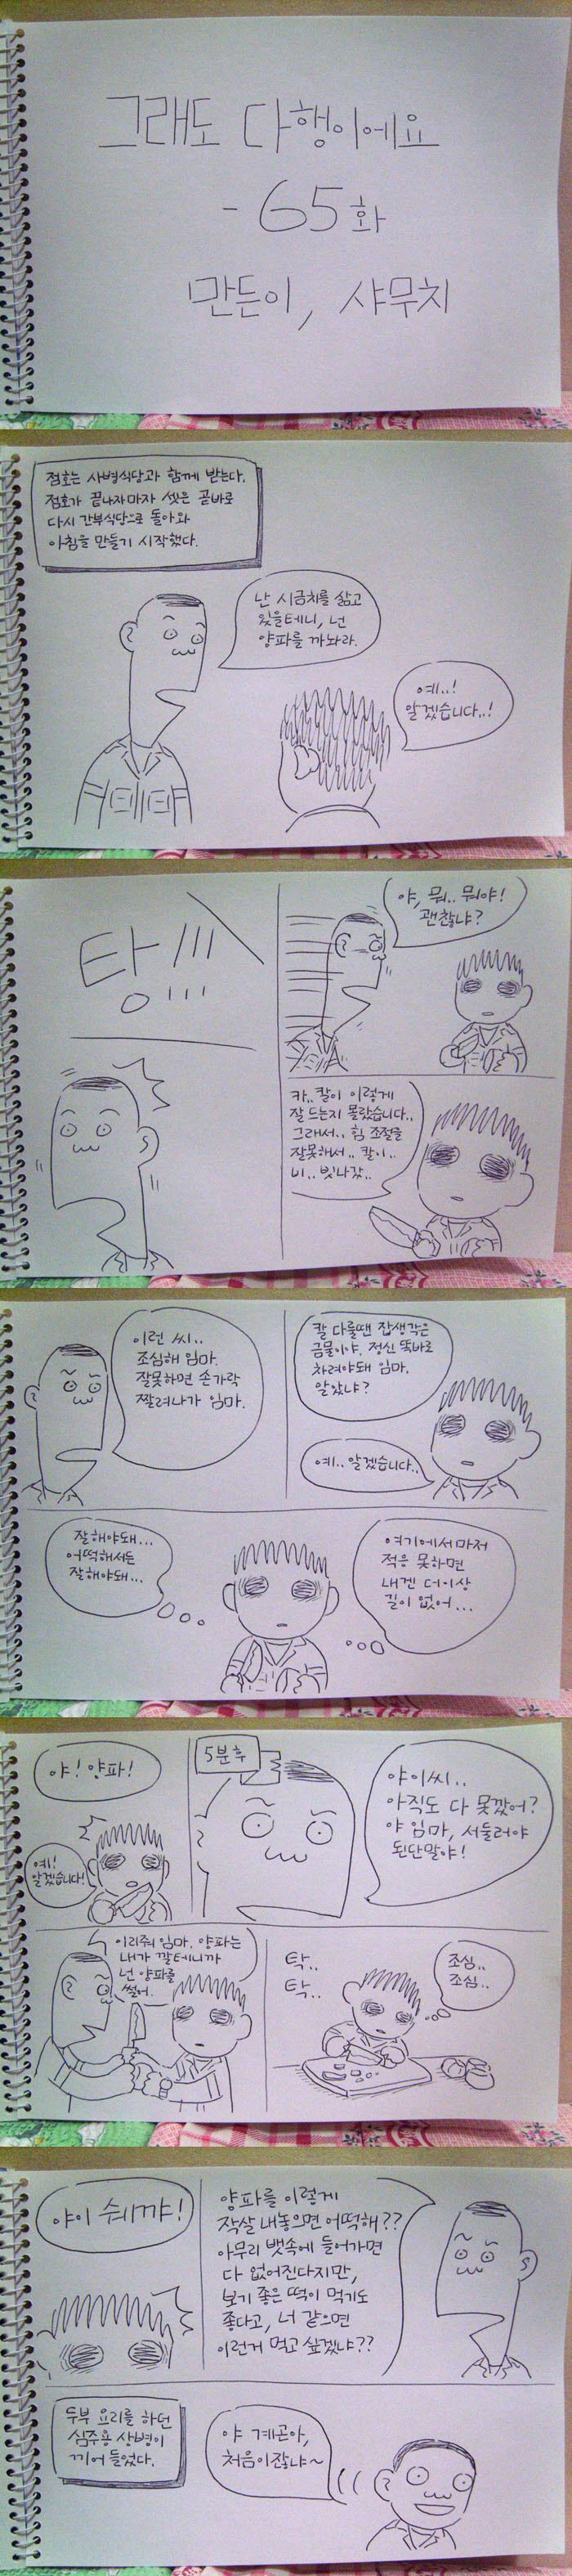 그래도 다행이에요
- 65화
만든이, 샤무치
점호는 사병식당과 함께 받는다.
점호가 끝나자마자 셋은 곧바로
다시 간부식당으로 돌아와
아침을 만들기 시작했다.
난 시금치를 삶고
있을테니, 넌
양파를 까놔라.
예..!
알겠습니다..!
탕!!!
야, 뭐.. 뭐야!
괜찮냐?
카..칼이 이렇게
잘 드는지 몰랐습니다..
그래서.. 힘 조절을
잘못해서.. 칼이..
비.. 빗나갔..
이런 씨..
조심해 임마.
잘못하면 손가락
짤려나가 임마.
칼 다룰땐 잡생각은
금물이야. 정신 똑바로
차려야돼 임마.
알았냐?
예.. 알겠습니다..
잘해야돼...
어떡해서든
잘해야돼...
여기에서마저
적응 못하면
내겐 더이상
길이 없어...
야! 양파!
예!
알겠습니다!
5분후
야이씨..
아직도 다 못깠어?
야 임마, 서둘러야
된단말야!
이리줘 임마. 양파는
내가 깔테니까
넌 양파를
썰어.
탁..
탁..
조심..
조심..
야이 쉐꺄!
양파를 이렇게
작살 내놓으면 어떡해??
아무리 뱃속에 들어가면
다 없어진다지만,
보기 좋은 떡이 먹기도
좋다고, 너 같으면
이런거 먹고 싶겠냐??
두부 요리를 하던
심주용 상병이
끼어 들었다.
야 계곤아,
처음이잖냐~